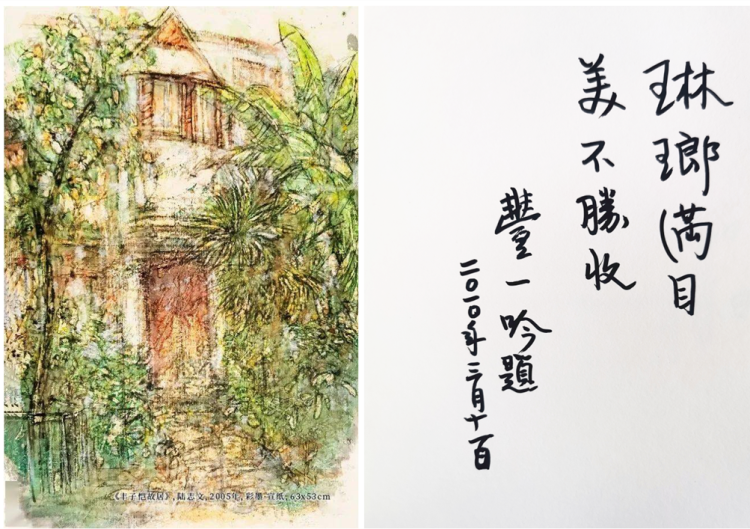 《丰子恺故居》,陆志文,2005年,彩墨·宣纸,63x53cm
琳瑯満目
美不勝收
豐一吟題
二〇一〇年三月十一日